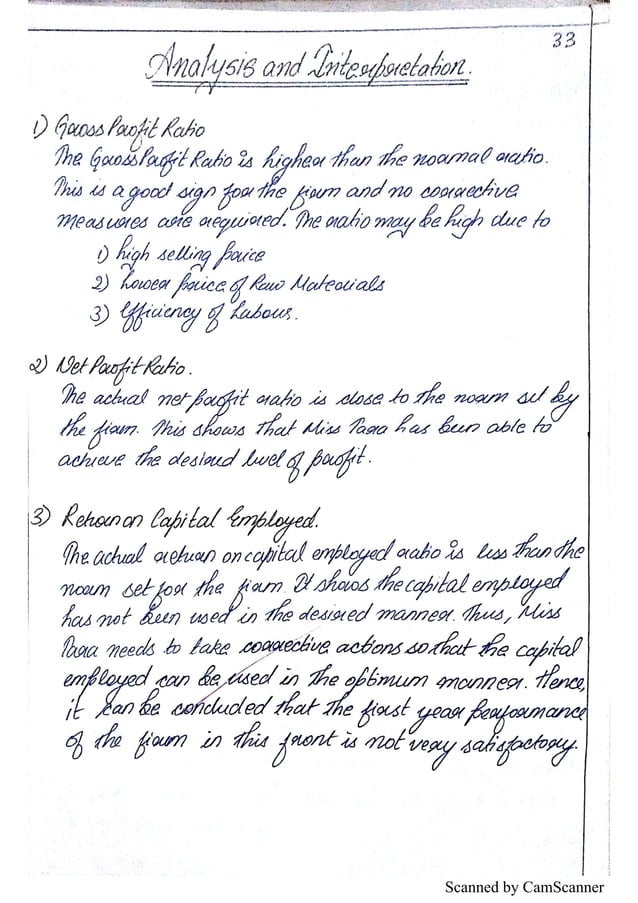 33
Analysis and Interpretation.
1) Gross Profit Ratio
The Gross Profit Ratio is higher than the normal ratio.
This is a good sign for the firm and no corrective
measures are required. The ratio may be high due to
1) high selling price
2) Lower price of Raw Materials
3) Efficiency of Labour.
2) Net Profit Ratio.
The actual net profit ratio is close to the norm set by
the firm. This shows that Miss Para has been able to
achieve the desired level of profit.
3) Return on Capital Employed.
The actual return on capital employed ratio is less than the
norm set for the firm. It shows the capital employed
has not been used in the desired manner. Thus, Miss
Para needs to take corrective actions so that the capital
employed can be used in the optimum manner. Hence,
it can be concluded that the first year performance
of the firm in this front is not very satisfactory.
Scanned by CamScanner